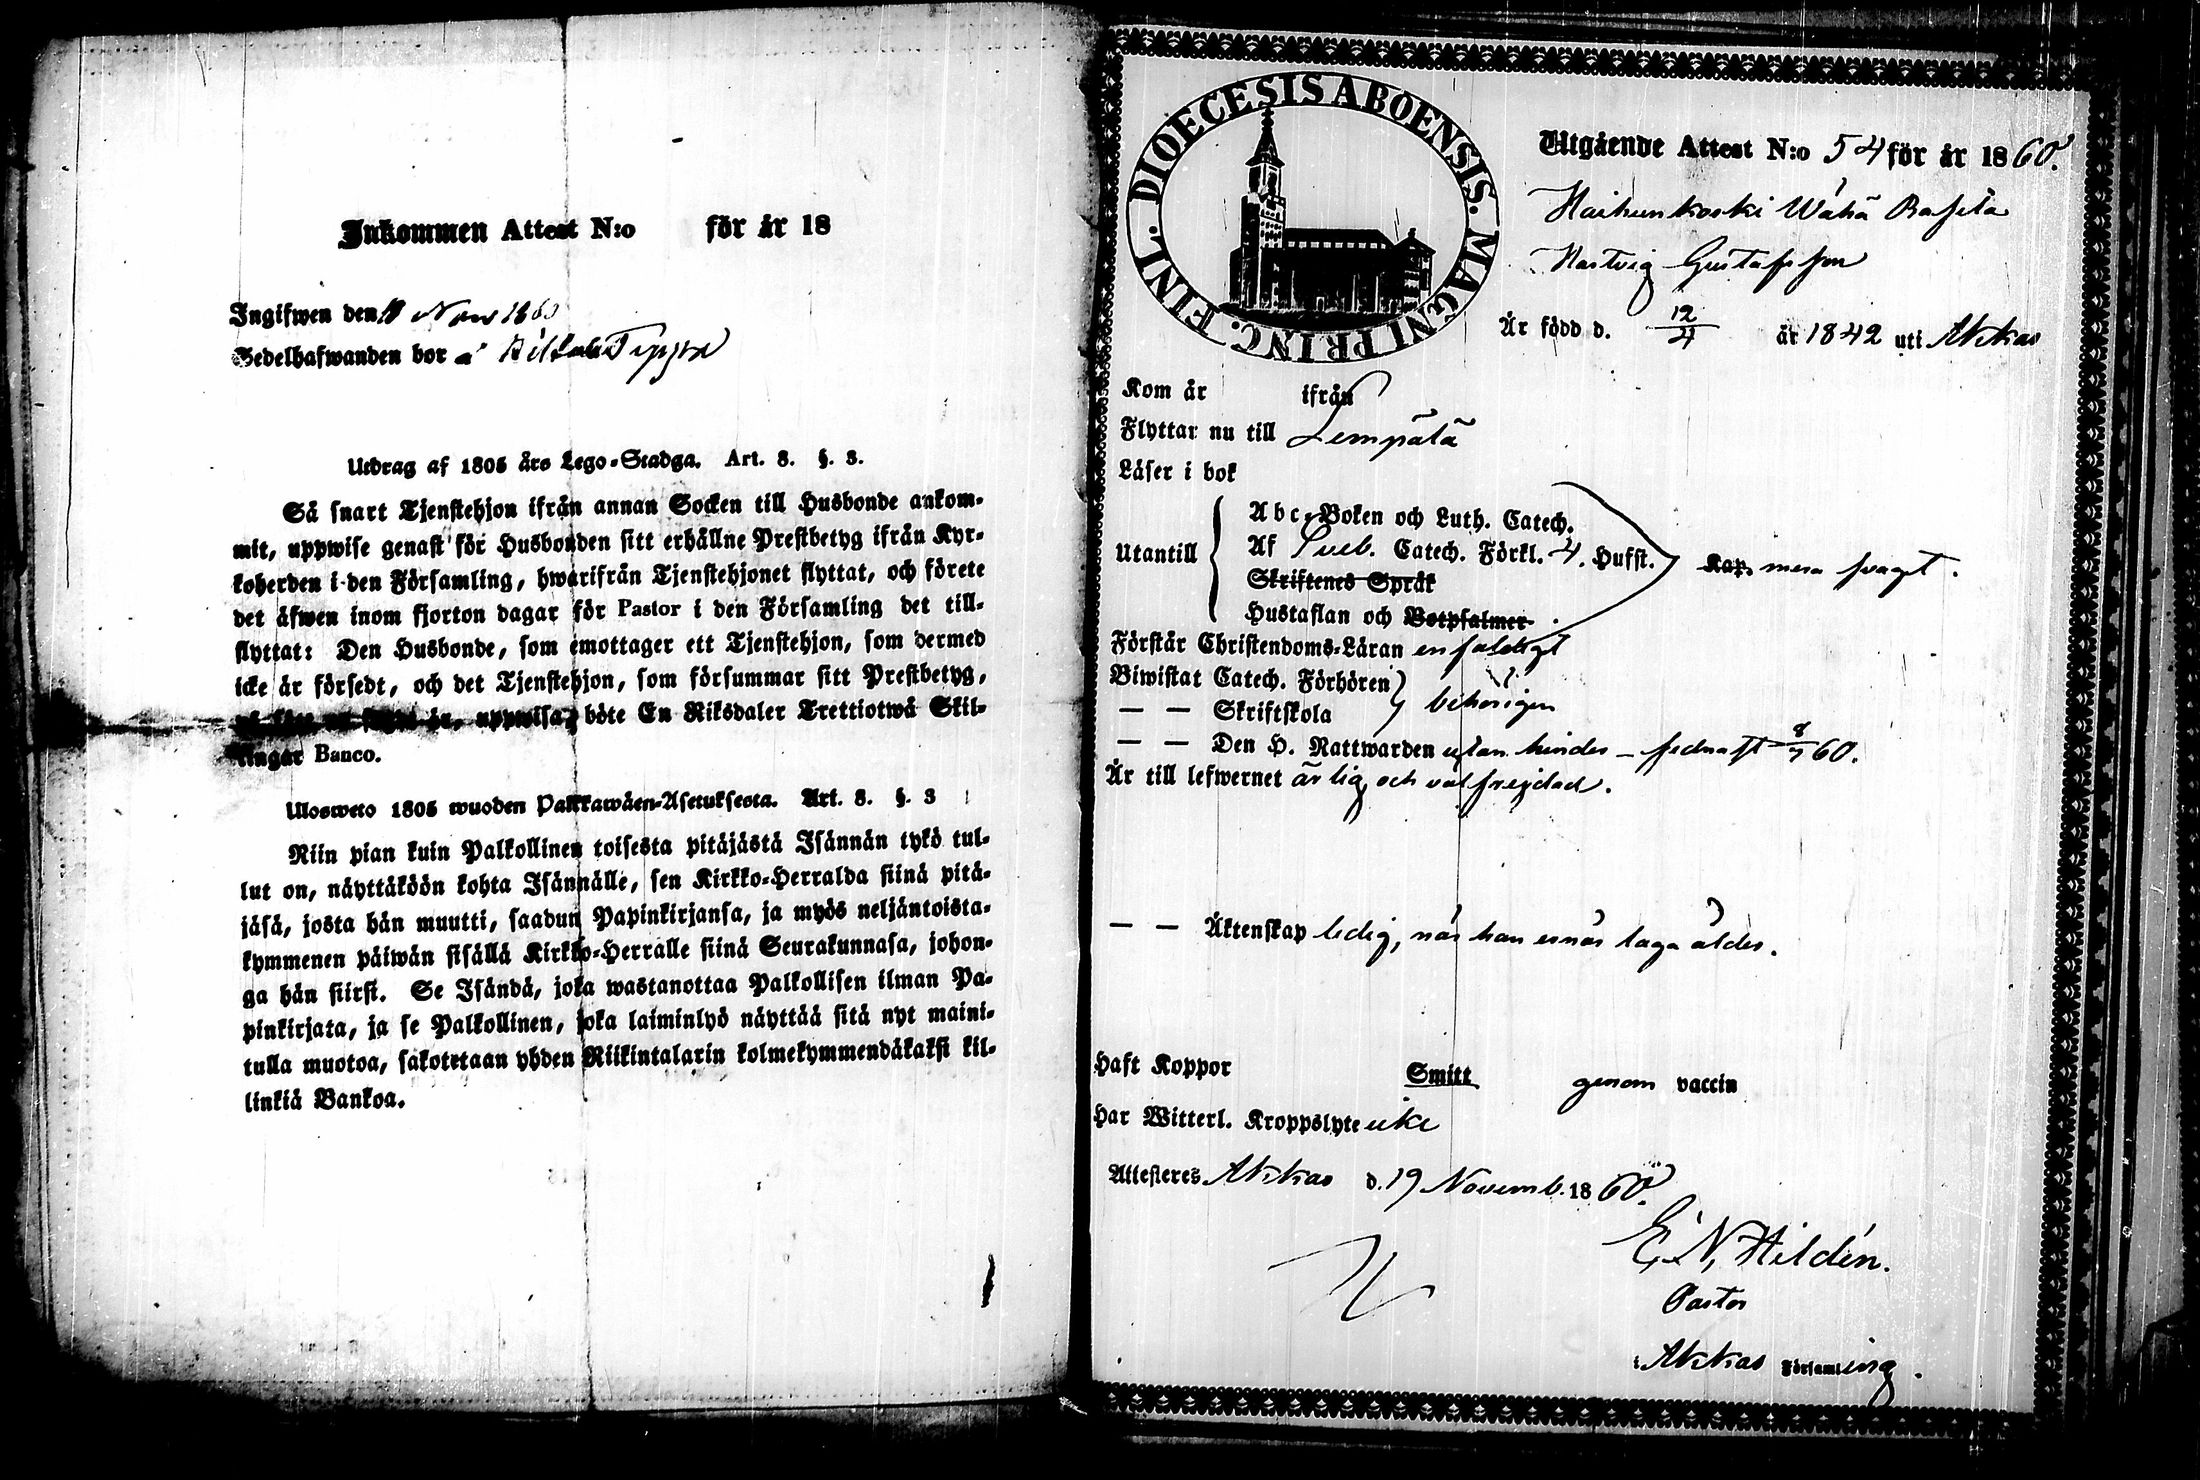 Inkommen Attest N:o för år 18
Ingifwen den 19 Nov 1860
Sedelhafwanden bor å
Utdrag af 1805 års Lego-Stadga. Art. 8. §. 3.
Så snart Tjenstehjon ifrån annan Socken till Husbonde ankom-
mit, uppwise genast för Husbonden sitt erhållne Prestbetyg ifrån Kyr-
koherden i den Församling, hwarifrån Tjenstehjonet flyttat, och förete
det äfwen inom fjorton dagar för Pastor i den Församling det till-
flyttat: Den Husbonde, som emottager ett Tjenstehjon, som dermed
icke är försedt, och det Tjenstehjon, som försummar sitt Prestbetyg,
på sätt nu sagdt är, uppwisa, böte En Riksdaler Trettiotwå Skil-
lingar Banco.
Ulosweto 1805 wuoden Palkkawäen-Asetuksesta. Art. 8. §. 3
Niin pian kuin Palkollinen toisesta pitäjästä Isännän tykö tul-
lut on, näyttäköön kohta Isännälle, sen Kirkko-Herralda siinä pitä-
jäsä, josta hän muutti, saadun Papinkirjansa, ja myös neljäntoista-
kymmenen päiwän sisällä Kirkko-Herralle siinä Seurakunnasa, johon-
ga hän siirsi. Se Isändä, joka wastanottaa Palkollisen ilman Pa-
pinkirjata, ja se Palkollinen, joka laiminlyö näyttää sitä nyt maini-
tulla muotoa, sakotetaan yhden Riikintalarin kolmekymmendäkaksi kil-
linkiä Bankoa.
DIOECESIS ABOENSIS. MAGNI PRINC. FINL.
Utgående Attest N:o 54 för år 1860.
Haihunkoski Wähä Rasila
Hartvig Gustafsson
Är född d. 12/4 år 1842 uti Akkas
Kom år ifrån
Flyttar nu till Lempälä
Läser i bok
Utantill
Abc-Boken och Luth. Catech.
Af Sveb. Catech. Förkl. 4. Hufst. Kap. mera svagt.
Skriftenes Språk
Hustaflan och Botpsalmer
Förstår Christendoms-Läran enfaldigt
Biwistat Catech. Förhören
— — Skriftskola behörigen
— — Den H. Nattwarden utan hinder – sednast 8/7 60.
Är till lefwernet ärlig och välfrejdad.
— — Äktenskap ledig, när han ernår laga ålder.
Haft Koppor Smitt genom vaccin
Har Witterl. Kroppslyte icke
Attesteres Akkas d. 19 Novemb. 1860.
E. N. Hildén.
Pastor
i Akkas Församling.